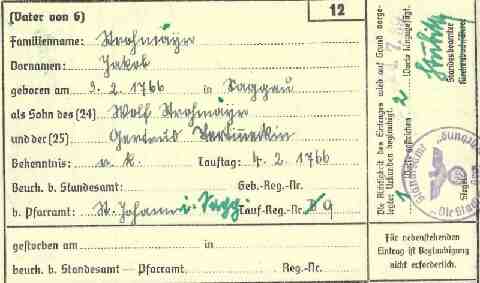 12
(Vater von 6)
Familienname: Strohmayr
Vornamen: Jakob
geboren am 3. 2. 1766 in Saggau
als Sohn des (24) Wolf Strohmayr
und der (25) Gertrud
Bekenntnis: r. k. Tauftag: 4. 2. 1766
Beurk. b. Standesamt: Geb.-Reg.-Nr.
b. Pfarramt: St. Johann i. Sagg. Tauf-Reg.-Nr. 9
gestorben am in
beurk. b. Standesamt — Pfarramt Reg.-Nr.
Die Richtigkeit des Eintrages wird auf Grund vorge-
legter Urkunden beglaubigt.
1 Worte gestrichen 2 Worte hinzugefügt.
Standesbeamter
Siegel
Für nebenstehenden
Eintrag ist Beglaubigung
nicht erforderlich.